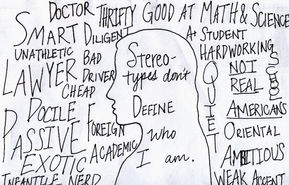 DOCTOR THRIFTY GOOD AT MATH & SCIENCE
SMART DILIGENT
A+ STUDENT
UNATHLETIC BAD DRIVER
HARDWORKING
LAWYER CHEAP
DOCILE
PASSIVE FOREIGN
EXOTIC ACADEMIC
INFANTILE NERD
Stereo-
types don't
DEFINE
who
I am.
QUIET
NOT
REAL
AMERICANS
ORIENTAL
AMBITIOUS
WEAK ACCENT